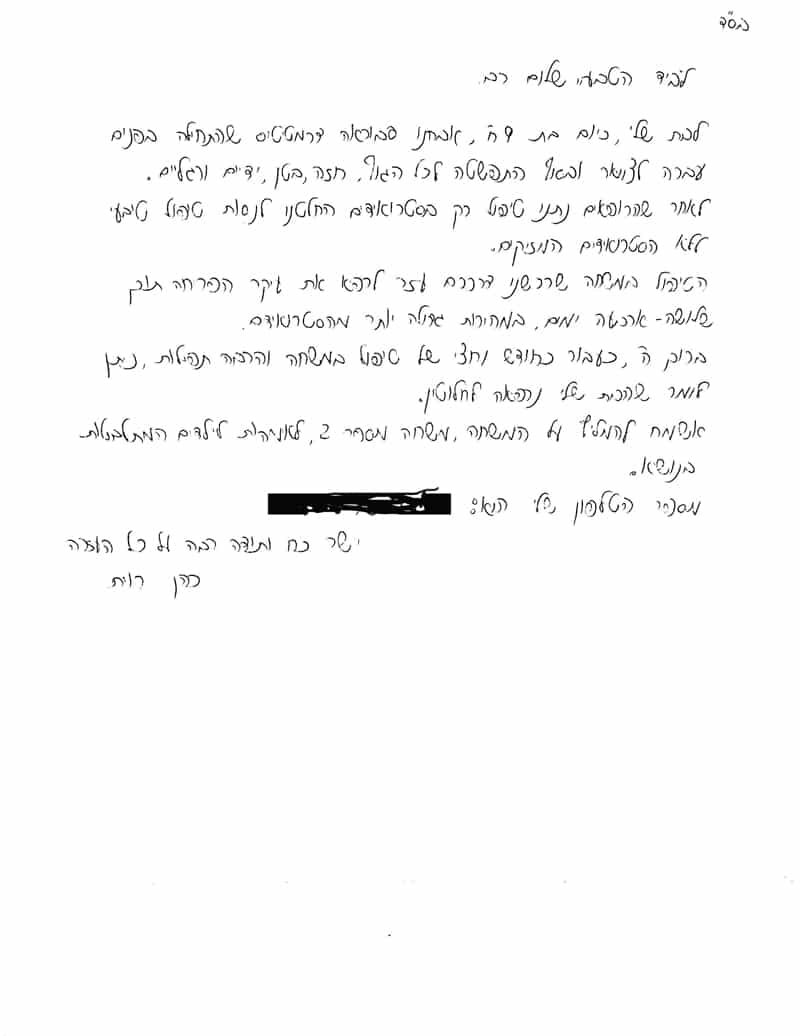 בס"ד
לביד הטבעי שלום רב.
לבת שלי, כיום בת 9 ח', אובחנו סבוראה דרמטטיס שהתחילה בפנים
עברה לצוואר ובסוף התפשטה לכל הגוף, חזה, בטן, ידיים ורגליים.
לאחר שהרופאים נתנו טיפול רק בסטרואידים החלטנו לנסות טיפול טבעי
ללא הסטרואידים המזיקים.
הטיפול במשחה שרכשנו דרככם עזר לרפא את עיקר הפריחה תוך
שלושה-ארבעה ימים, במהירות גדולה יותר מהסטרואידים.
ברוך ה', כעבור כחודש וחצי של טיפול במשחה והרבה תפילות, ניתן
לומר שהבת שלי נרפאה לחלוטין.
אשמח להמליץ על המשחה, משחה מספר 2, לאמהות לילדים המתלבטות
בנושא.
מספר הטלפון שלי הוא:
יישר כח ותודה רבה על כל העזרה
כהן רוית